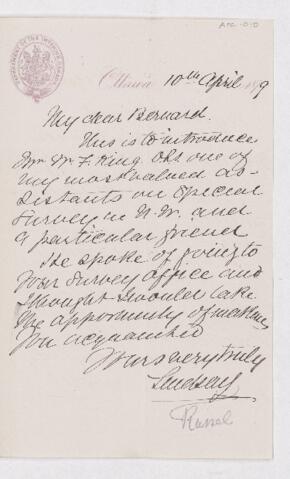 DEPARTMENT OF THE INTERIOR CANADA
Ottawa 10th April 1879
My dear Bernard.
This is to introduce
Mr W. F. King. one of
my most valued as-
sistants on Special
Survey in N.W. and
a particular friend
He spoke of going to
your Survey office and
I thought I would take
the opportunity of making
you acquainted
Yours very truly
Lindsay
Russel